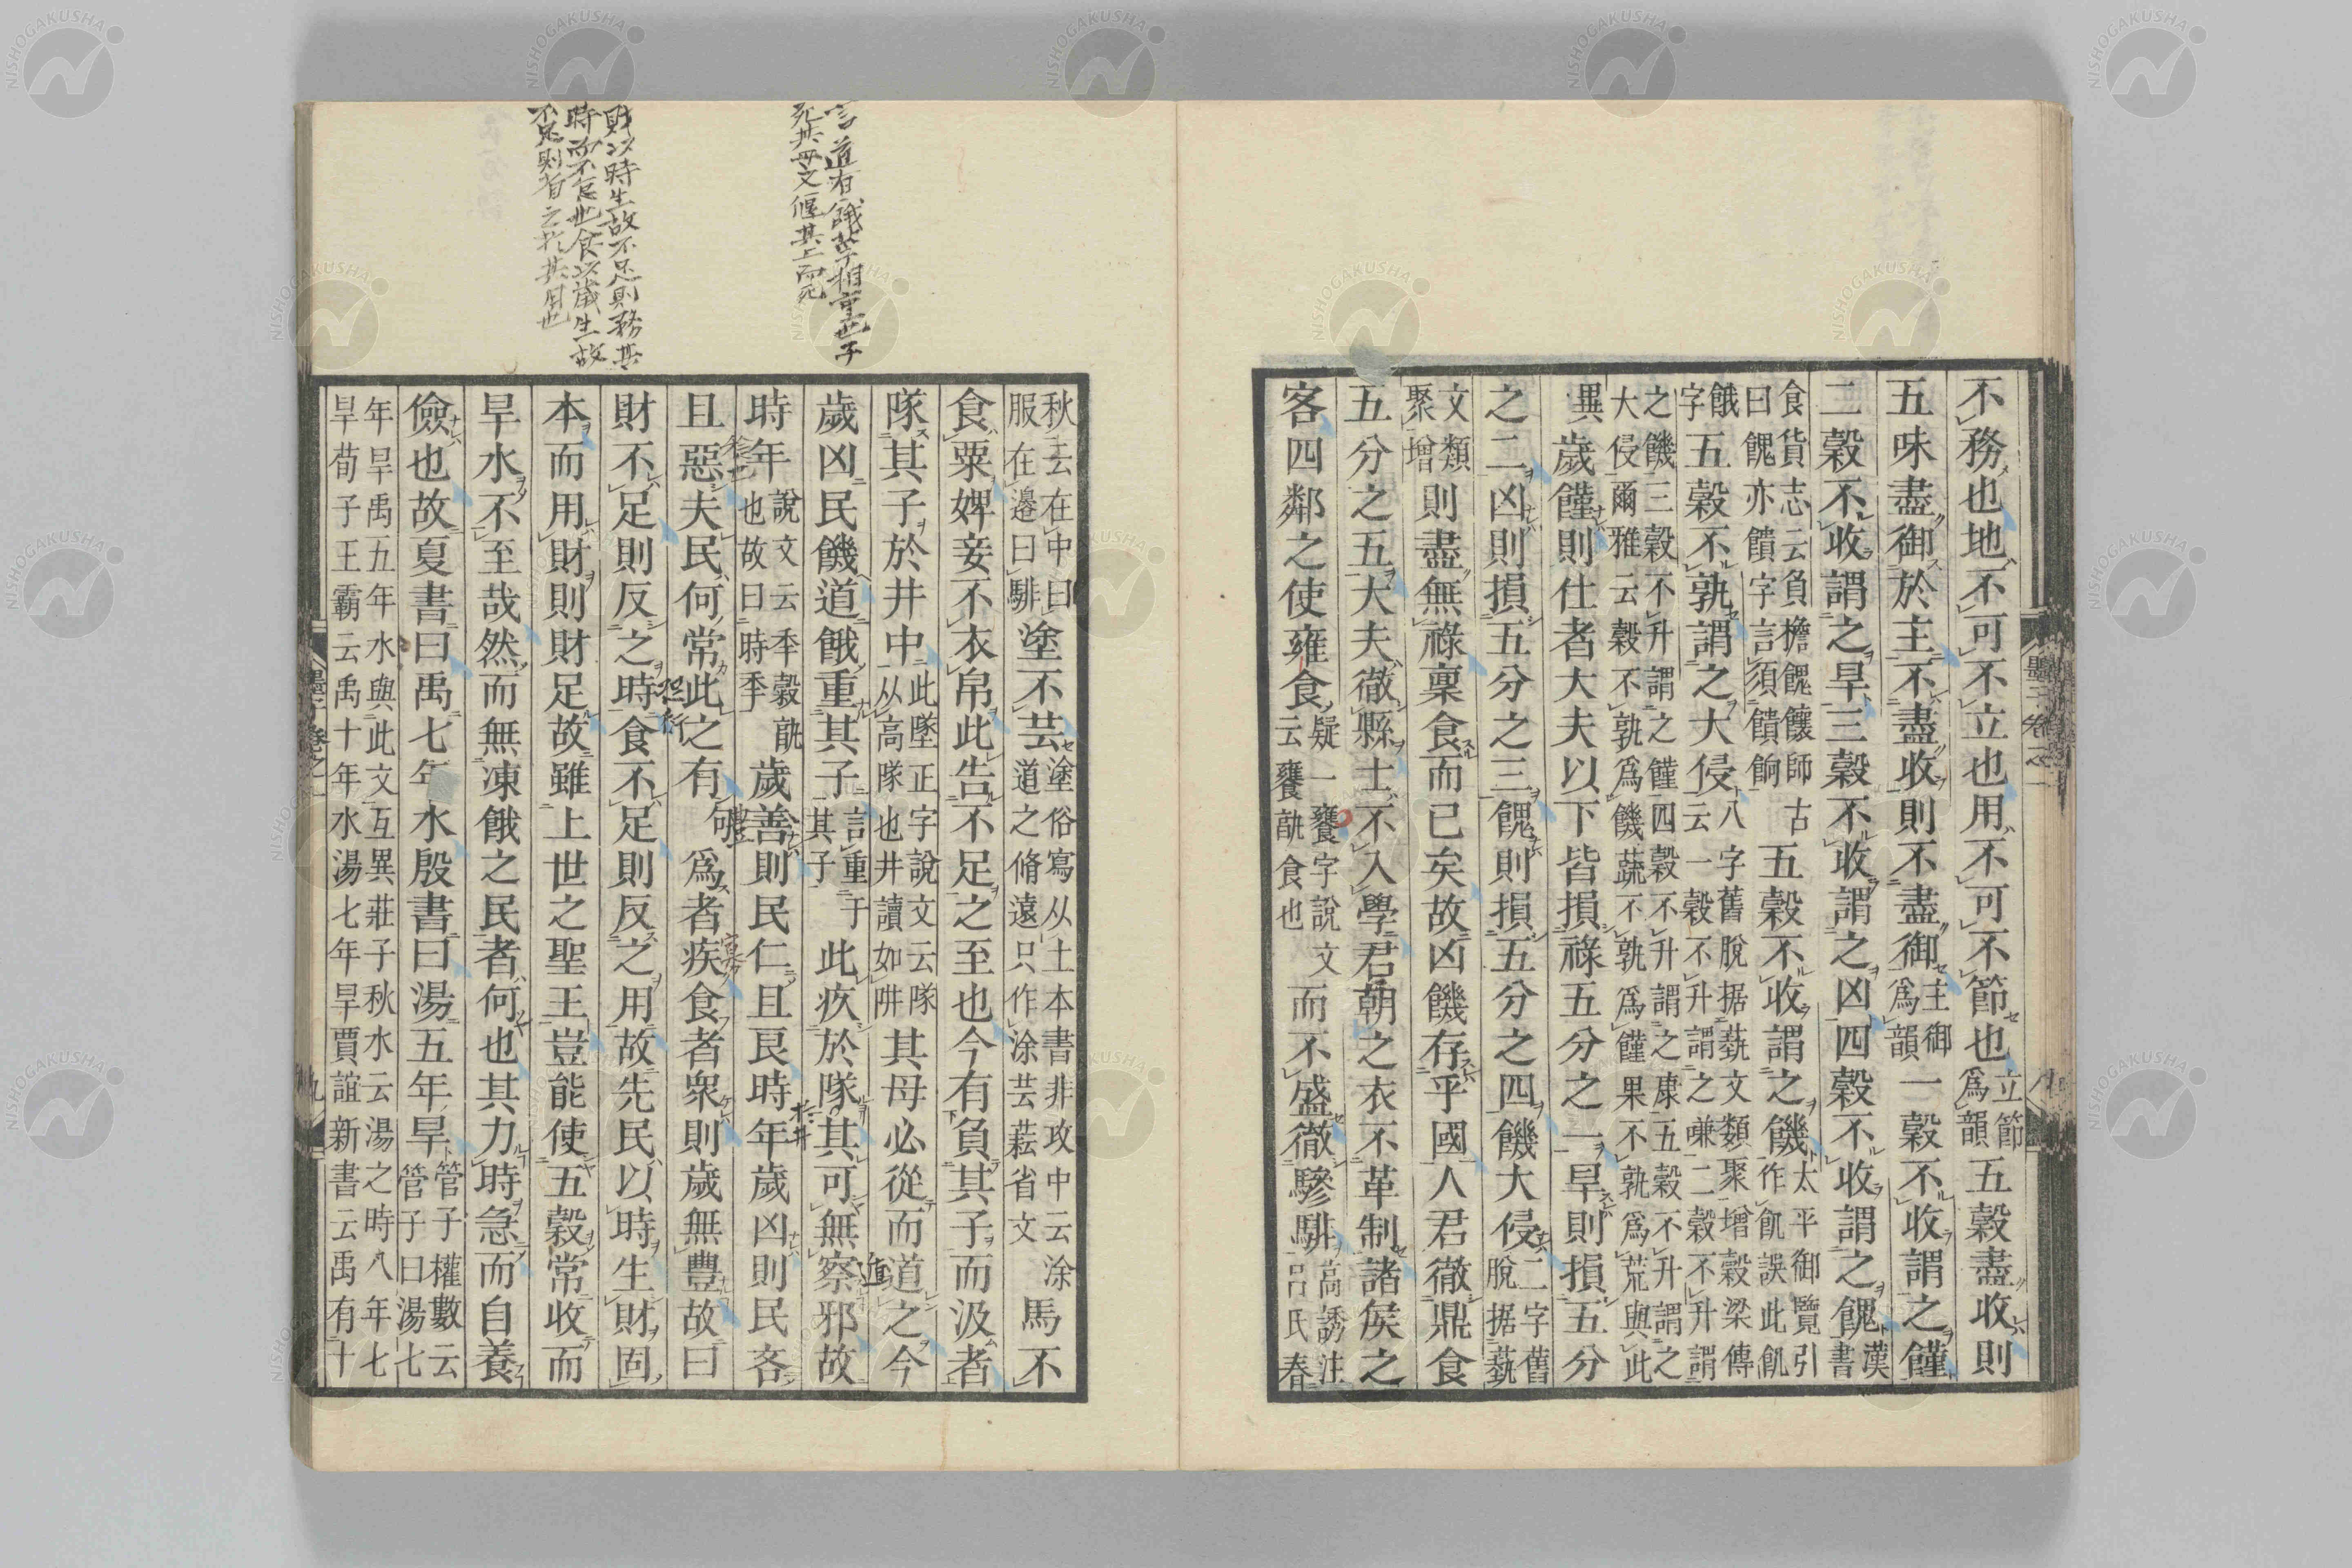 不務也地不可不立也用不可不節也立節爲韻五穀盡收則
五味盡御於主不盡收則不盡御主御爲韻一穀不收謂之饉
二穀不收謂之旱三穀不收謂之凶四穀不收謂之餽漢書
食貨志云負擔餽饟師古曰餽亦饋字言須饋餉五穀不收謂之饑太平御覽引作飢誤此飢
餓字五穀不孰謂之大侵八字舊脫据藝文類聚增穀梁傳云一穀不升謂之嗛二穀不升謂
之饑三穀不升謂之饉四穀不升謂之康五穀不升謂之大侵爾雅云穀不孰爲饑蔬不孰爲饉果不孰爲荒與此
異歲饉則仕者大夫以下皆損祿五分之一旱則損五分
之二凶則損五分之三餽則損五分之四饑大侵二字舊脫据藝
文類聚增則盡無祿稟食而已矣故凶饑存乎國人君徹鼎食
五分之五大夫徹縣士不入學君朝之衣不革制諸侯之
客四鄰之使雍食疑一饔字說文云饔孰食也而不盛徹驂騑高誘注呂氏春
言道有餓莩相重也子
死其母又偃其上而死
財以時生故不足則務其
時而不怠也食以歲生故
不足則省之於其用也
秋云在中曰服在邊曰騑塗不芸塗俗寫从土本書非攻中云涂道之脩遠只作涂芸䔞省文馬不
食粟婢妾不衣帛此告不足之至也今有負其子而汲者
隊其子於井中此墜正字說文云隊从高隊也井讀如阱其母必從而道之今
歲凶民饑道餓重其子言重于其子此疚於隊其可無察邪故
時年說文云季穀孰也故曰時季歲善則民仁且良時年歲凶則民吝
且惡夫民何常此之有句爲者疾食者衆則歲無豐故曰
財不足則反之時食不足則反之用故先民以時生財固
本而用財則財足故雖上世之聖王豈能使五穀常收而
旱水不至哉然而無凍餓之民者何也其力時急而自養
儉也故夏書曰禹七年水殷書曰湯五年旱管子權數云管子曰湯七
年旱禹五年水與此文互異莊子秋水云湯之時八年七旱荀子王霸云禹十年水湯七年旱賈誼新書云禹有十
墨子卷之一
九